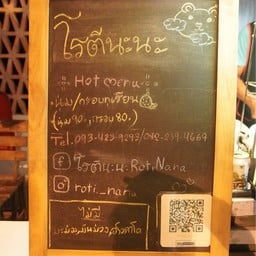 โรตีนะนะ
Hot menu
นิ่ม/กรอบทุเรียน
(นิ่ม90.,กรอบ80.)
Tel.093-423-9293/
โรตีนะนะ:Roti,Nana
roti_nana
ไม่มี
มะม่วง